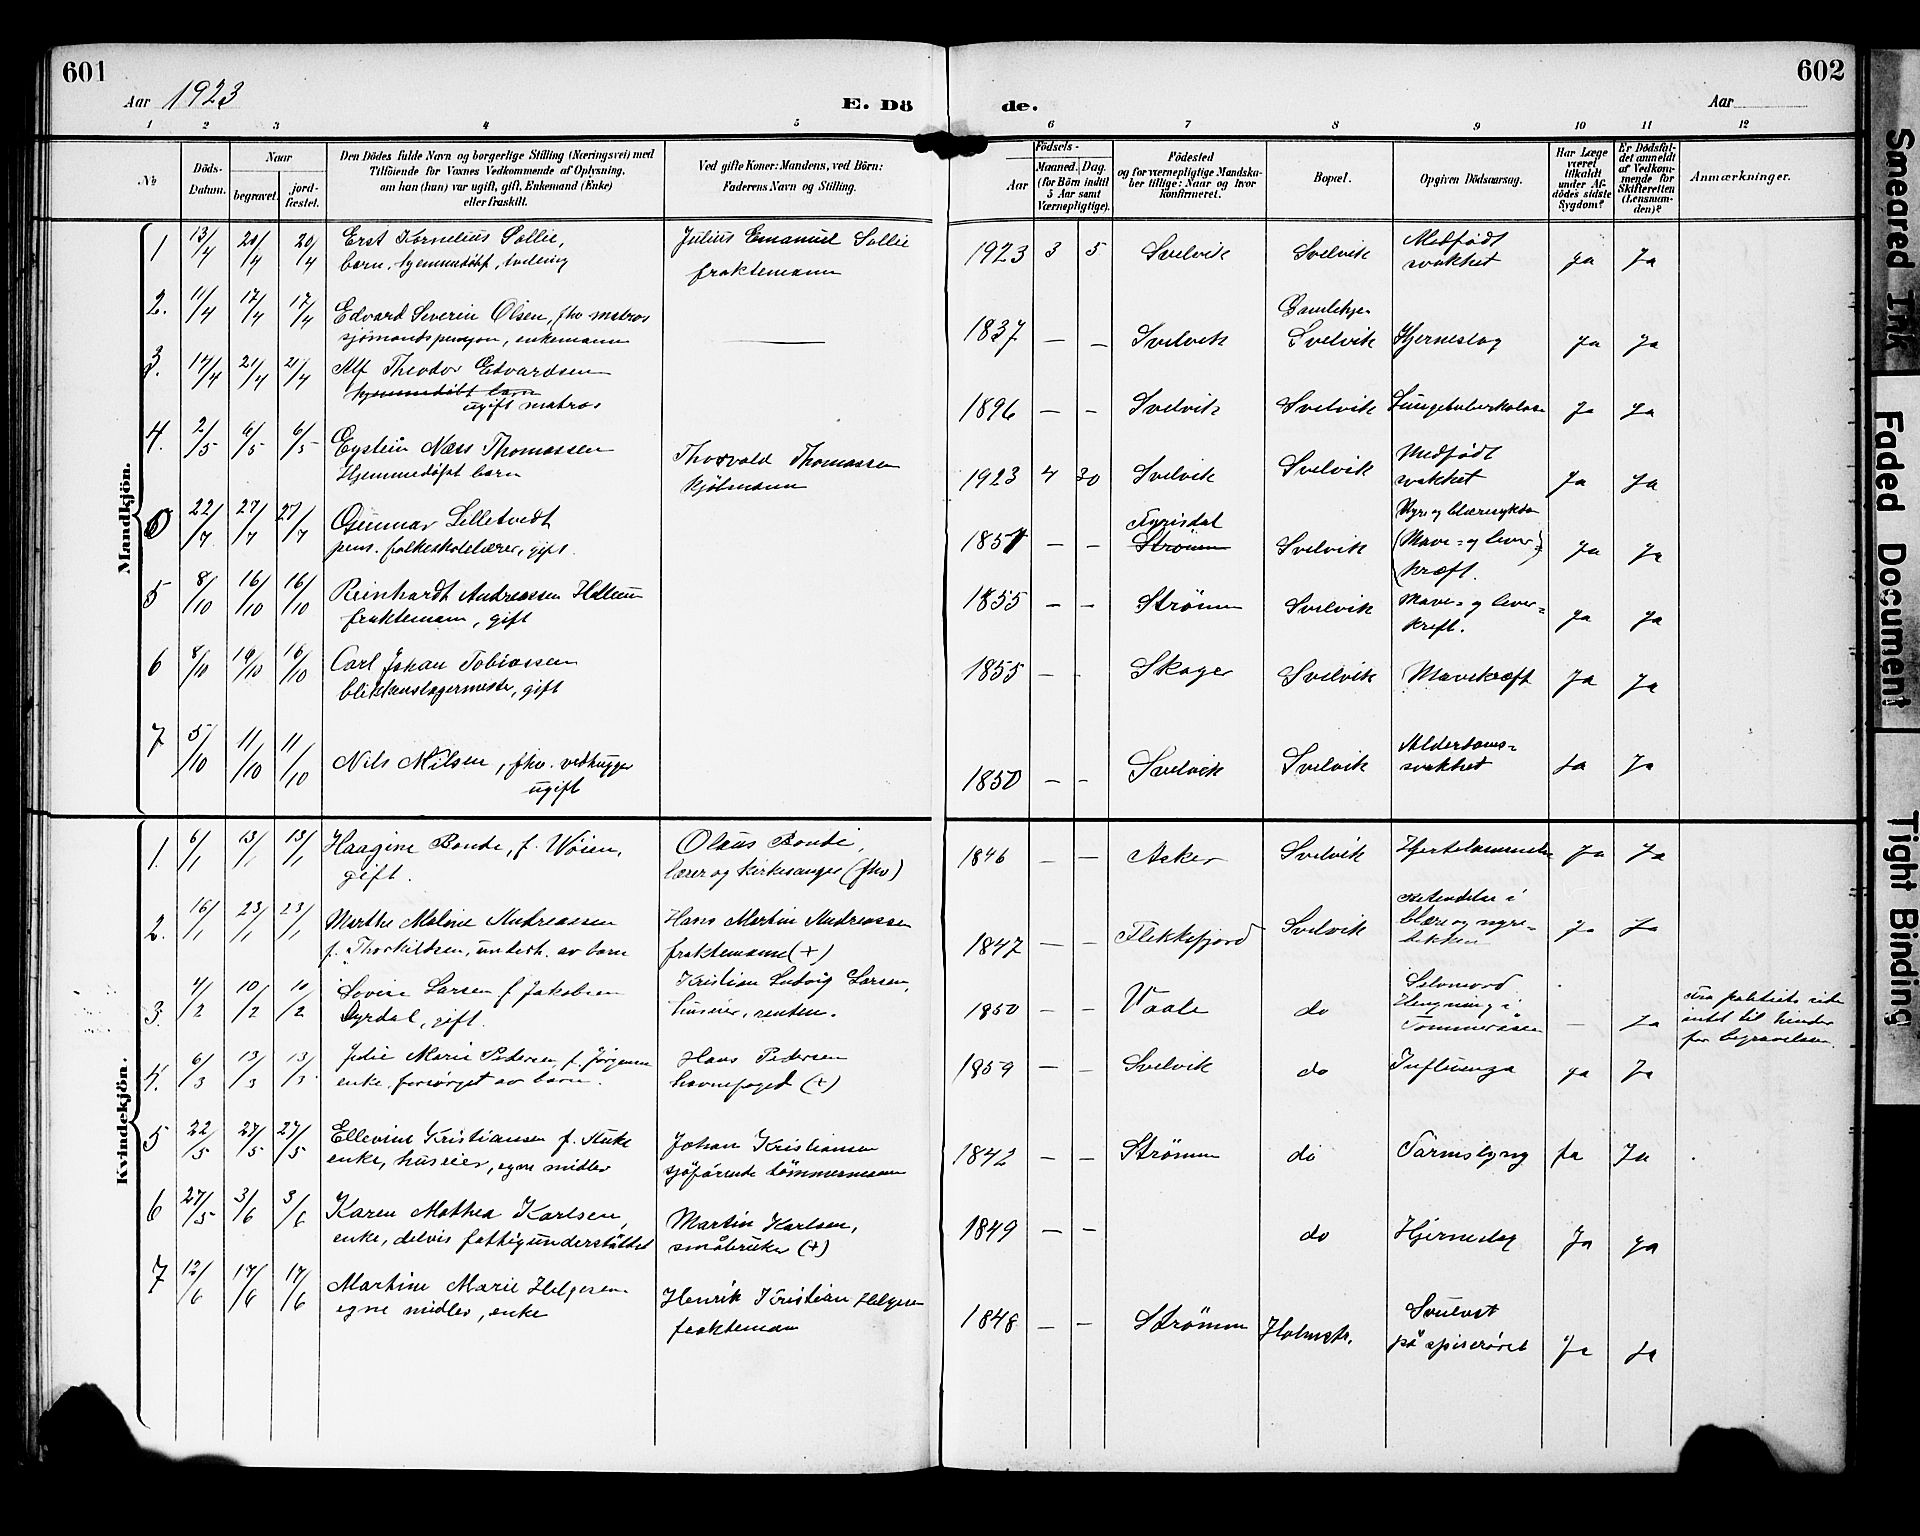 601
602
Aar 1923
E. Dö
de.
Aar
1 2 3 4 5 6 7 8 9 10 11 12
No
Döds-
Datum.
Naar
begravet.
jord-
fæstet.
Den Dödes fulde Navn og borgerlige Stilling (Næringsvei) med
Tilföiende for Voxnes Vedkommende af Oplysning,
om han (hun) var ugift, gift, Enkemand (Enke)
eller fraskilt.
Ved gifte Koner: Mandens, ved Börn:
Faderens Navn og Stilling.
Födsels-
Aar
Maaned. Dag.
(for Börn indtil
5 Aar samt
Værnepligtige).
Födested
og for værnepligtige Mandska-
ber tillige: Naar og hvor
konfirmeret.
Bopæl.
Opgiven Dödsaarsag.
Har Læge
været
tilkaldt
under Af-
dödes sidste
Sygdom?
Er Dödsfal-
det anmeldt
af Vedkom-
mende for
Skifteretten
(Lensman-
den)?
Anmærkninger.
Mandkjön.
1 13/4 20/4 20/4 Erst Kornelius Sollie, Julius Emanuel Sollie 1923 3 5 Svelvik Svelvik Medfödt Ja Ja
barn, hjemmedöbt, tvilling fraktemann svakhet
2. 11/4 17/4 17/4 Edvard Severin Olsen, fhv. matros 1837 — — Svelvik Svelvik Hjerneslag Ja Ja
sjömandspensjon, enkemann
3. 14/4 21/4 21/4 Alf Theodor Edvardsen 1896 — — Svelvik Svelvik Lungetuberkulose Ja Ja
hjemmedöbt barn
ugift matros
4. 2/5 6/5 6/5 Eystein Næss Thomassen Thorvald Thomassen 1923 4 30 Svelvik Svelvik Medfödt Ja Ja
Hjemmedöpt barn kjöbmann svakhet
22/7 27/7 27/7 Gunnar Lilletvedt 1851 — — Fyrisdal Svelvik Nyre og blæresykdom Ja Ja
pens. folkeskolelærer, gift. Strömm (Mave- og lever-
kræft.
5 8/10 16/10 16/10 Reinhardt Andreassen Hellum 1855 — — Strömm Svelvik Mave- og lever- Ja Ja
fraktemann, gift kreft.
6 8/10 16/10 16/10 Carl Johan Tobiassen 1855 — — Skoger Svelvik Mavekræft Ja Ja
blikkenslagermester, gift
7 5/10 11/10 11/10 Nils Nilsen, fhv. vedhugger 1850 — — Svelvik Svelvik Alderdoms- Ja Ja
ugift svakhet
Kvindekjön.
1. 6/1 13/1 13/1 Haagine Bonde, f. Wöien, Olaus Bonde, 1846 — — Asker Svelvik Ja Ja
gift. lærer og kirkesanger (fhv)
2. 16/1 23/1 23/1 Marthe Maline Andreassen Hans Martin Andreassen 1847 — — Flekkefjord Svelvik Betendelse i Ja Ja
f. Thorkildsen, underh. av barn fraktemann (+) blære og nyre-
bekken
3. 4/2 10/2 10/2 Lovise Larsen f. Jakobsen Kristian Ludvig Larsen, 1850 — — Vaale do Selvmord Hengning i — Ja Fra politiets side
Dyrdal, gift. huseier, renten. Tömmeråsen intet til hinder
for begravelsen.
4. 6/3 13/3 13/3 Julie Marie Pedersen, f. Jörgensen Hans Pedersen 1859 — — Svelvik do Influenza Ja Ja
enke, forsörget av barn. havnefoged (+)
5 22/5 27/5 27/5 Ellevine Kristiansen f. Kuke Johan Kristiansen 1842 — — Strömm do Tarmslyng Ja Ja
enke, huseier, egne midler sjöfarende tömmermann
6 27/5 3/6 3/6 Karen Mathea Karlsen, Martin Karlsen, 1849 — — do Hjerneslag Ja Ja
enke, delvis fattigunderstöttet småbruker (+)
7 12/6 17/6 17/6 Martine Marie Helgesen Henrik Kristian Helgesen 1848 — — Strömm Holmstr. Svulvst Ja Ja
egne midler, enke fraktemann på spiseröret
Smeared Ink
Faded Document
Tight Binding